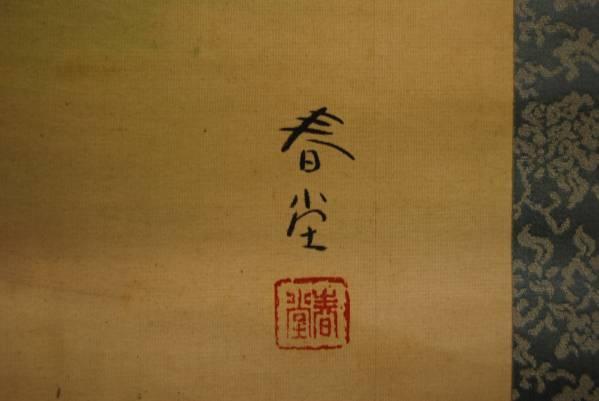 春堂
春堂